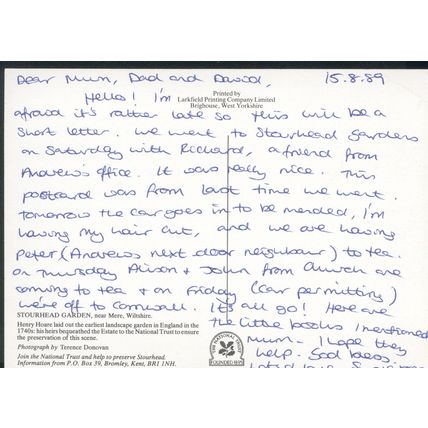 Dear Mum, Dad and David, 15.8.89
Printed by
Larkfield Printing Company Limited
Brighouse, West Yorkshire
Hello! I'm
afraid it's rather late so this will be a
short letter. We went to Stourhead gardens
on Saturday with Richard, a friend from
Andrew's office. It was really nice. This
postcard was from last time we went.
Tomorrow the car goes in to be mended, I'm
having my hair cut, and we are having
Peter (Andrew's next door neighbour) to tea.
On Thursday Alison + John from church are
coming to tea + on Friday (car permitting)
we're off to Cornwall. It's all go! Here are
the little books I mentioned
Mum - I hope they
help. God bless,
STOURHEAD GARDEN, near Mere, Wiltshire.
Henry Hoare laid out the earliest landscape garden in England in the
1740s: his heirs bequeathed the Estate to the National Trust to ensure
the preservation of this scene.
Photograph by Terence Donovan
Join the National Trust and help to preserve Stourhead.
Information from P.O. Box 39, Bromley, Kent, BR1 1NH.
THE NATIONAL TRUST
FOUNDED 1895